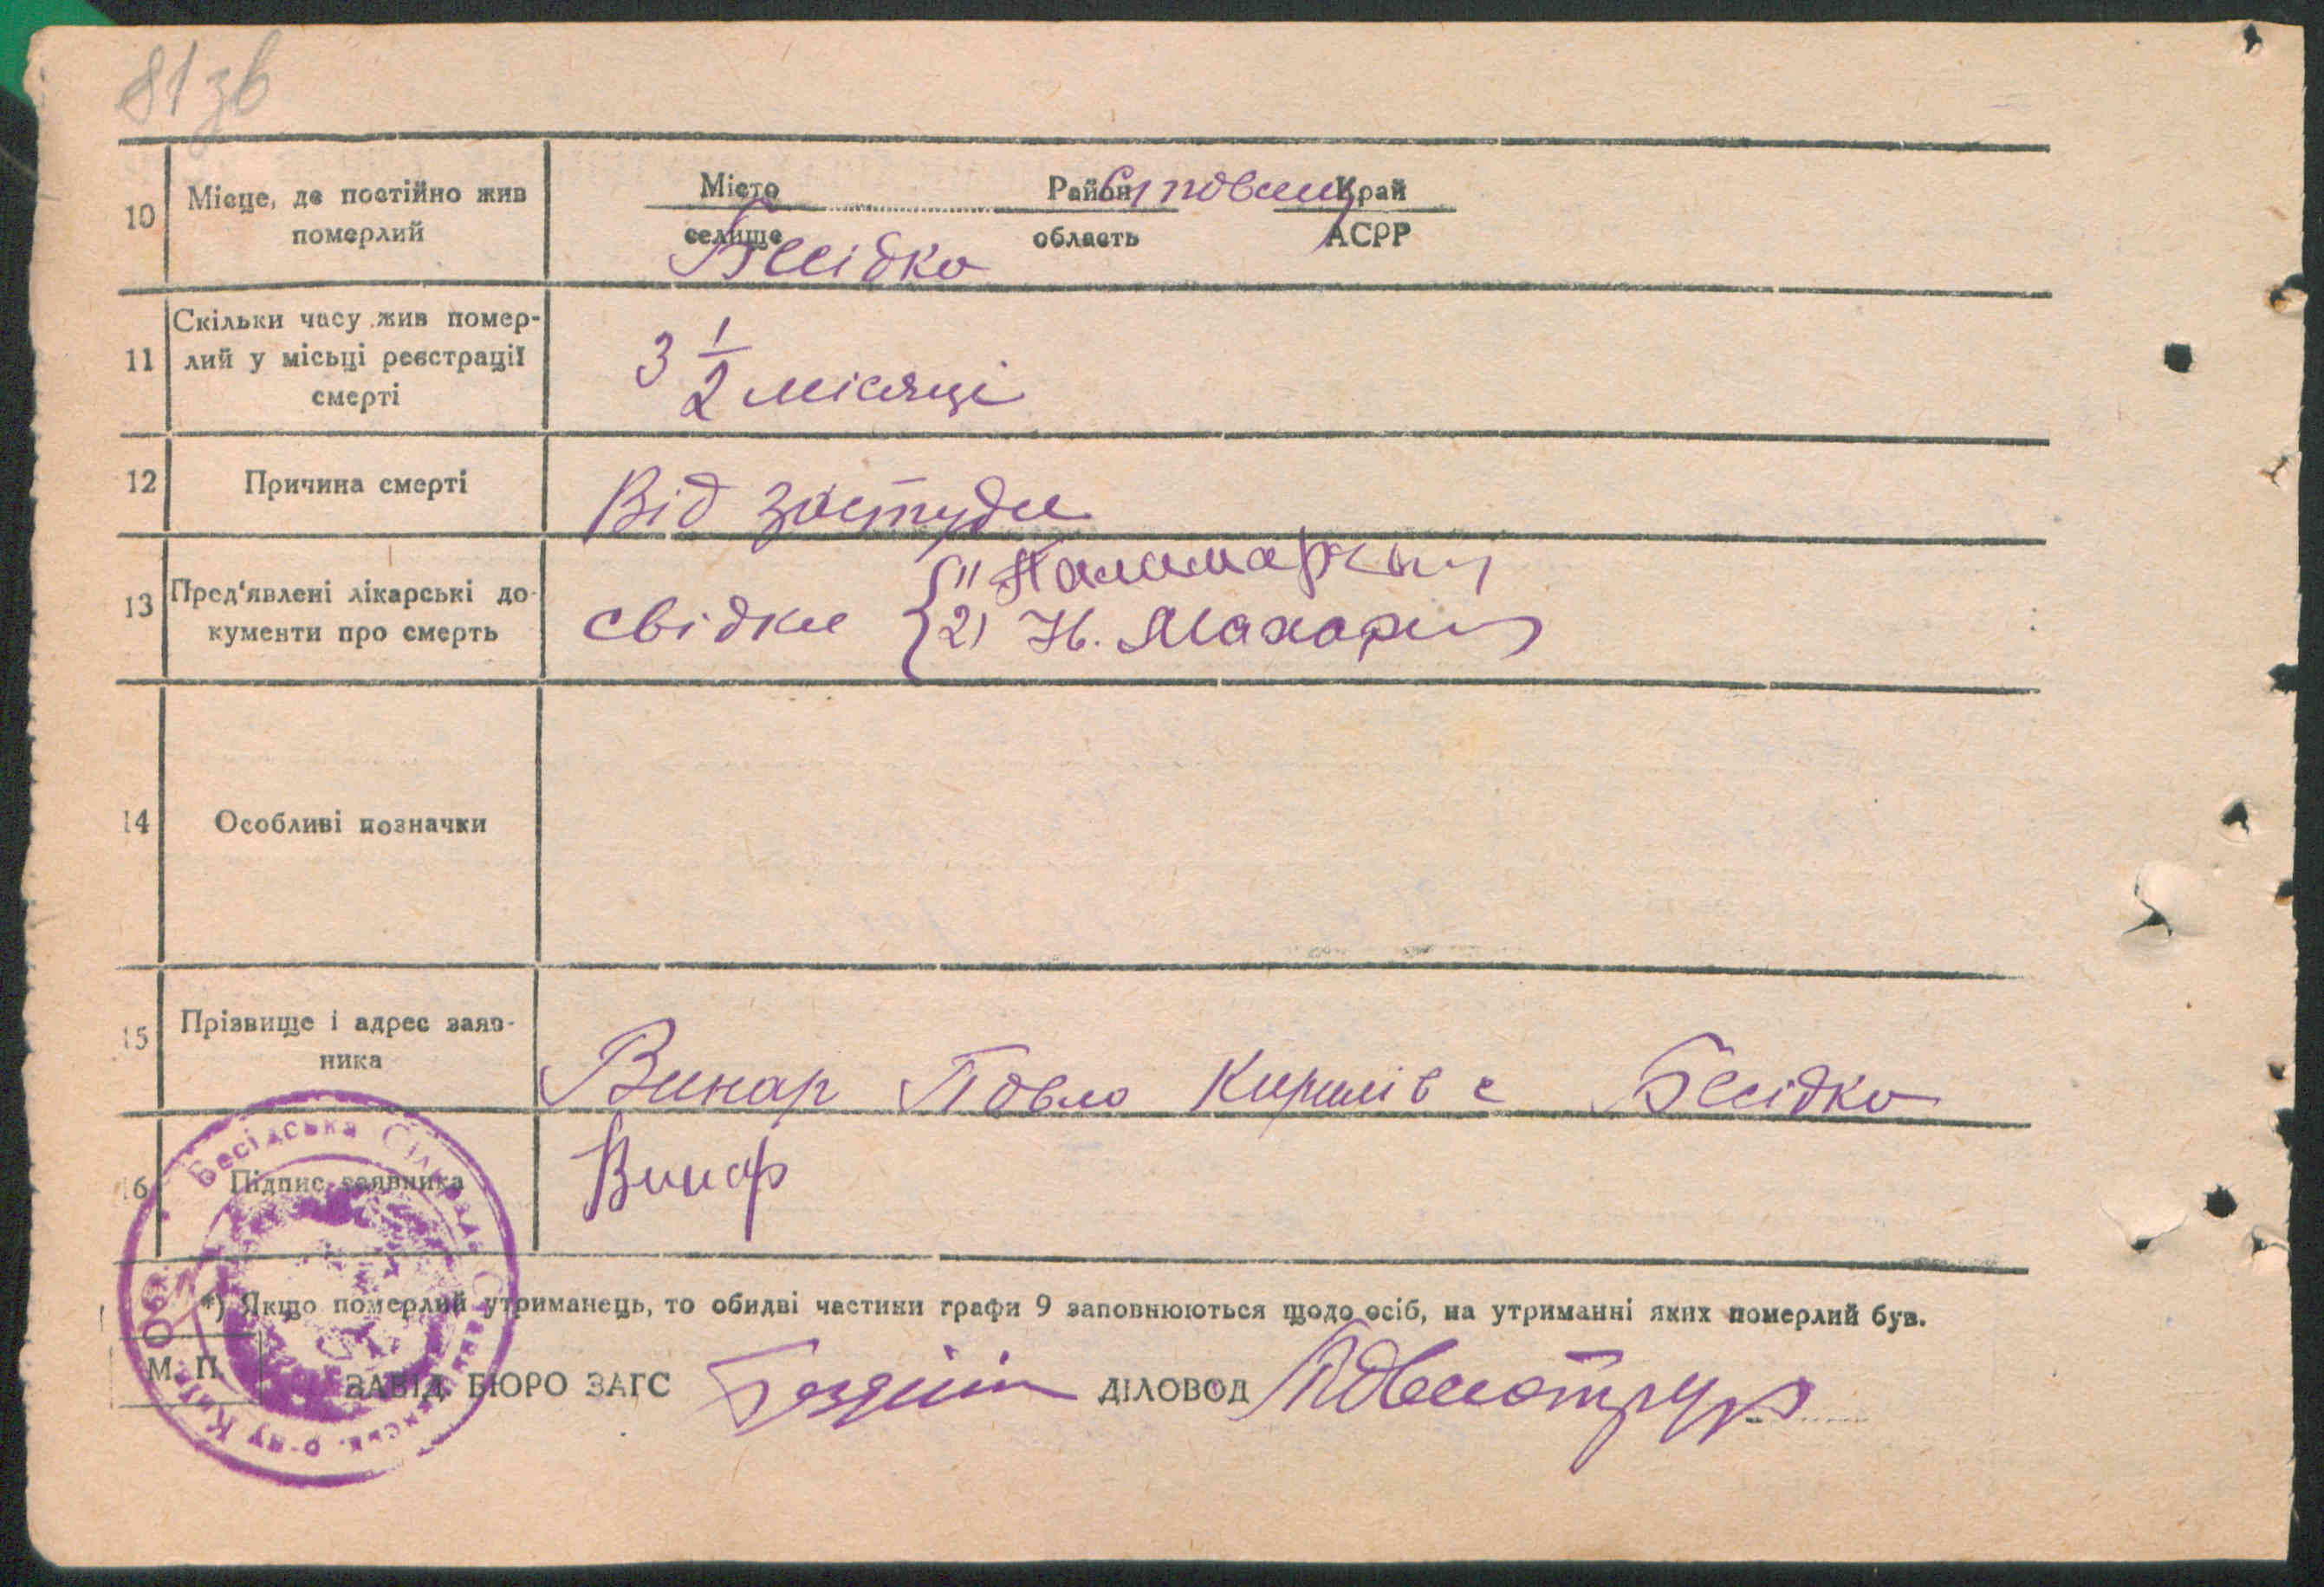 81 зв
10 Місце, де постійно жив померлий
Місто Район Край
селище область АСРР
Бесідка
11 Скільки часу жив помер-
лий у місьці реєстрації
смерті
3 1/2 місяці
12 Причина смерті
Від застуди
13 Пред'явлені лікарські до-
кументи про смерть
свідки { 1)
2) Н.
14 Особливі позначки
15 Прізвище і адрес заяв-
ника
Винар Павло Кирилів с Бесідка
16 Підпис заявника
Винар
Бесідська Сільрада
р-ну Київ. Обл.
*) Якщо померлий утриманець, то обидві частини графи 9 заповнюються щодо осіб, на утриманні яких померлий був.
М. П.
ЗАВІД. БЮРО ЗАГС ДІЛОВОД